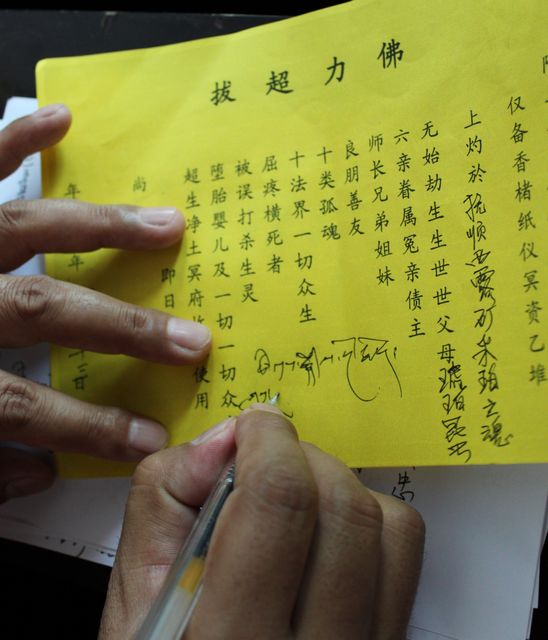 佛力超拔
仅备香楮纸仪冥资乙堆
上灼於抚顺西露矿采珀之魂
无始劫生生世世父母琥珀昆虫
六亲眷属冤亲债主
师长兄弟姐妹
良朋善友
十类孤魂
十法界一切众生
屈疼横死者
被误打杀生灵
堕胎婴儿及一切一切众
超生净土冥府 使用
即日
尚
年 年 十三日